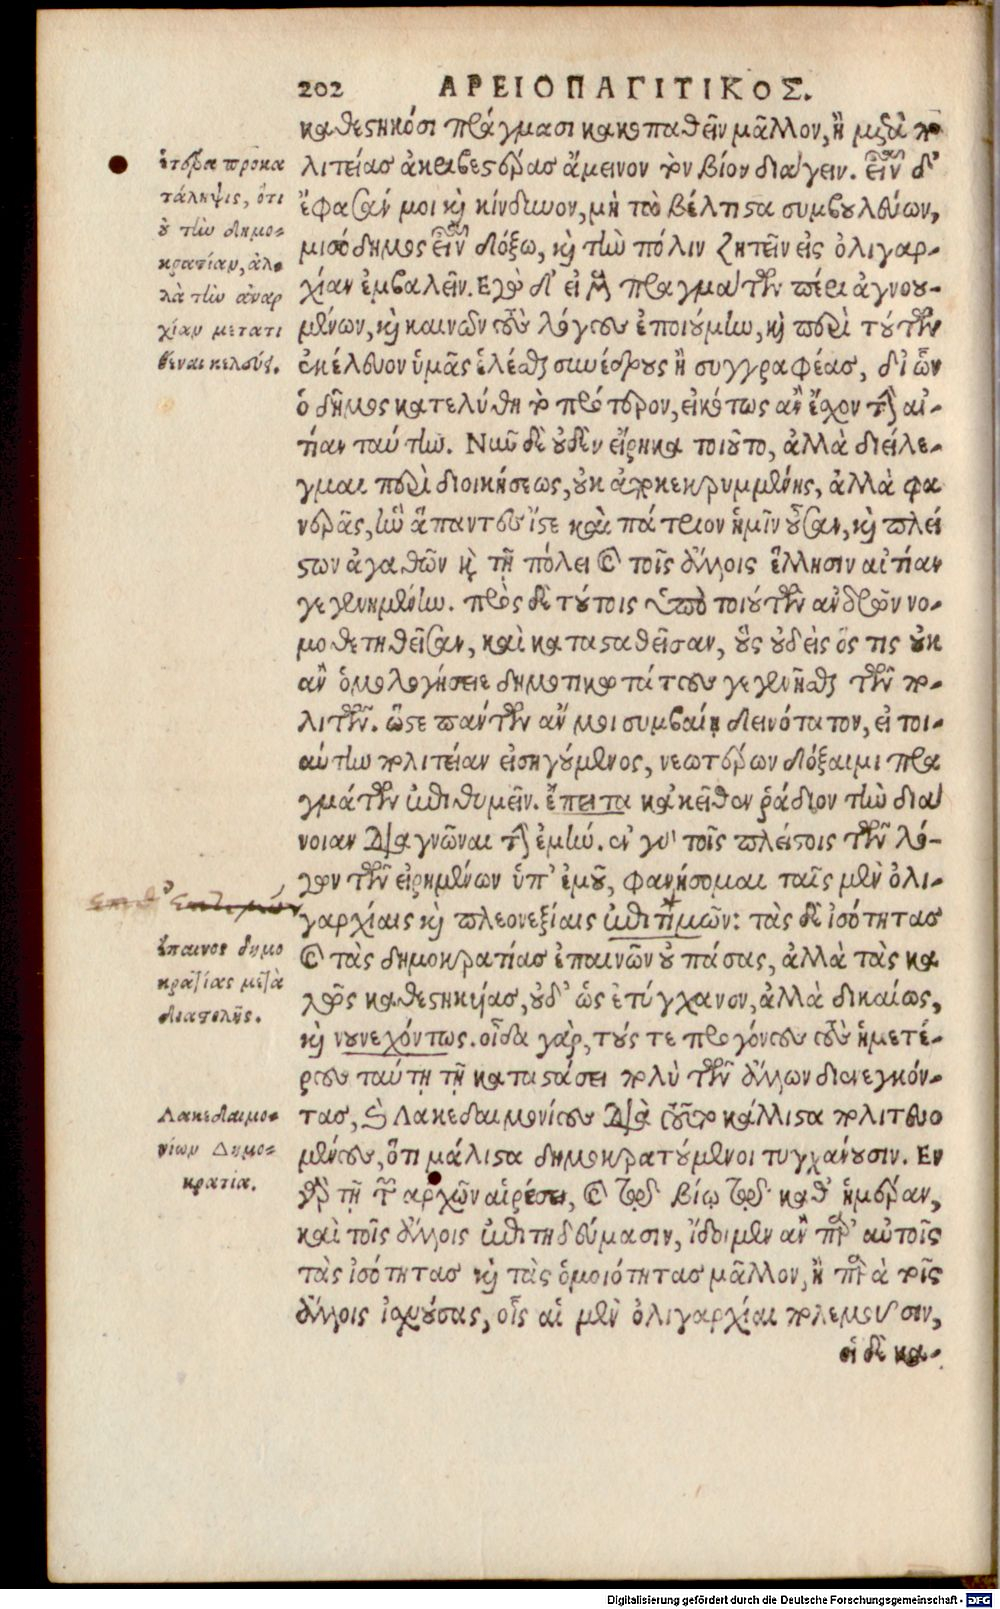 202 ΑΡΕΙΟΠΑΓΙΤΙΚΟΣ.
καθεστηκόσι πράγμασι κακοπαθεῖν μᾶλλον, ἢ μετὰ πο-
λιτείας ἀκριβεστέρας ἄμεινον τὸν βίον διάγειν. εἶναι δ'
ἔφασάν μοι καὶ κίνδυνον, μὴ τὰ βέλτιστα συμβουλεύων,
μισόδημος εἶναι δόξω, καὶ τὴν πόλιν ζητεῖν εἰς ὀλιγαρ-
χίαν ἐμβαλεῖν. Εγὼ δ' εἰ μὲν πραγμάτων περὶ ἀγνοου-
μένων, καὶ κοινῶν τοὺς λόγους ἐποιούμην, καὶ περὶ τούτων
ἐκέλευον ὑμᾶς ἑλέσθαι συνέδρους ἢ συγγραφέας, δι' ὧν
ὁ δῆμος κατελύθη τὸ πρότερον, εἰκότως ἂν εἶχον τὴν αἰ-
τίαν ταύτην. Νῦν δὲ οὐδὲν εἴρηκα τοιοῦτο, ἀλλὰ διείλε-
γμαι περὶ διοικήσεως, οὐκ ἀποκεκρυμμένης, ἀλλὰ φα
νερᾶς, ἣν ἅπαντες ἴστε καὶ πάτριον ἡμῖν οὖσαν, καὶ πλεί
στων ἀγαθῶν καὶ τῇ πόλει καὶ τοῖς ἄλλοις ἕλλησιν αἰτίαν
γεγενημένην. πρὸς δὲ τούτοις ὑπὸ τοιούτων ἀνδρῶν νο-
μοθετηθεῖσαν, καὶ κατασταθεῖσαν, οὓς οὐδεὶς ὅς τις οὐκ
ἂν ὁμολογήσειε δημοτικωτάτους γεγενῆσθαι τῶν πο-
λιτῶν. ὥστε πάντων ἄν μοι συμβαίη δεινότατον, εἰ τοι-
αύτην πολιτείαν εἰσηγούμενος, νεωτέρων δόξαιμι πρα
γμάτων ἐπιθυμεῖν. ἔπειτα κἀκεῖθεν ῥᾴδιον τὴν διά
νοιαν διαγνῶναι τὴν ἐμήν. ἐν γὰρ τοῖς πλείστοις τῶν λό-
γων τῶν εἰρημένων ὑπ' ἐμοῦ, φανήσομαι ταῖς μὲν ὀλι-
γαρχίαις καὶ πλεονεξίαις ἐπιτιμῶν: τὰς δὲ ἰσότητας
καὶ τὰς δημοκρατίας ἐπαινῶν οὐ πάσας, ἀλλὰ τὰς κα
λῶς καθεστηκυίας, οὐδ' ὡς ἐτύγχανον, ἀλλὰ δικαίως,
καὶ νουνεχόντως. οἶδα γὰρ, τούς τε προγόνους τοὺς ἡμετέ-
ρους ταύτῃ τῇ καταστάσει πολὺ τῶν ἄλλων διενεγκόν-
τας, καὶ Λακεδαιμονίους διὰ τοῦτο κάλλιστα πολιτευο
μένους, ὅτι μάλιστα δημοκρατούμενοι τυγχάνουσιν. Εν
γὰρ τῇ τῶν ἀρχῶν αἱρέσει, καὶ τῷ βίῳ τῷ καθ' ἡμέραν,
καὶ τοῖς ἄλλοις ἐπιτηδεύμασιν, ἴδοιμεν ἂν παρ' αὐτοῖς
τὰς ἰσότητας καὶ τὰς ὁμοιότητας μᾶλλον, ἢ παρὰ τοῖς
ἄλλοις ἰσχυούσας, οἷς αἱ μὲν ὀλιγαρχίαι πολεμοῦσιν,
οἱ δὲ κα-
ἑτέρα προκα
τάληψις, ὅτι
οὐ τὴν δημο-
κρατίαν, ἀλ-
λὰ τὴν ἀναρ
χίαν μετατι
θέναι κελεύει.
ἔπαινος δημο
κρατίας μετὰ
διαστολῆς.
Λακεδαιμο-
νίων Δημο-
κρατία.
Digitalisierung gefördert durch die Deutsche Forschungsgemeinschaft - DFG